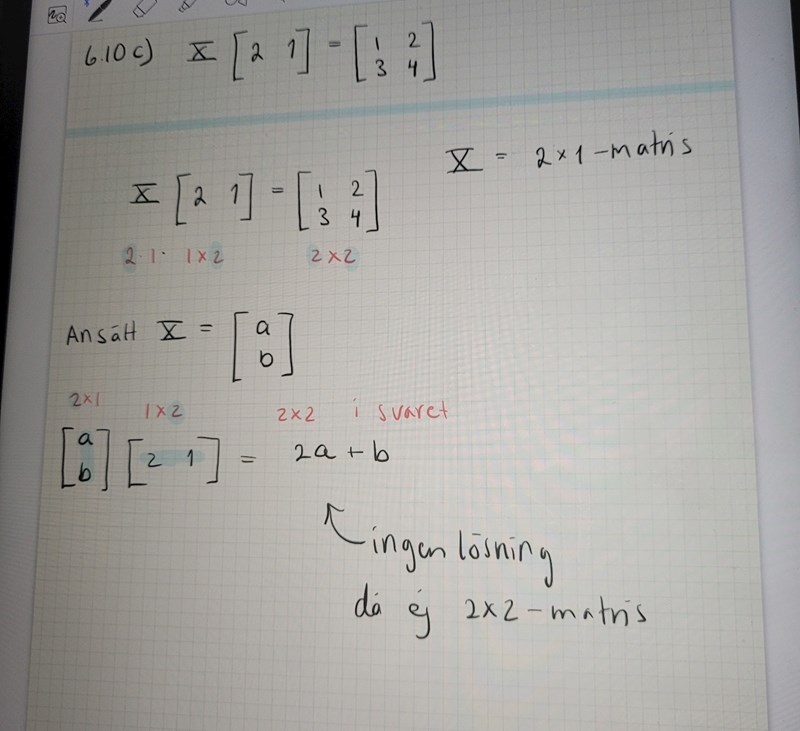 6.10 c) X [2 1] = [1 2
3 4]
X = 2×1-matris
X [2 1] = [1 2
3 4]
2·1· 1×2 2×2
Ansätt X = [a
b]
2×1 1×2 2×2 i svaret
[a
b] [2 1] = 2a + b
ingen lösning
då ej 2×2-matris